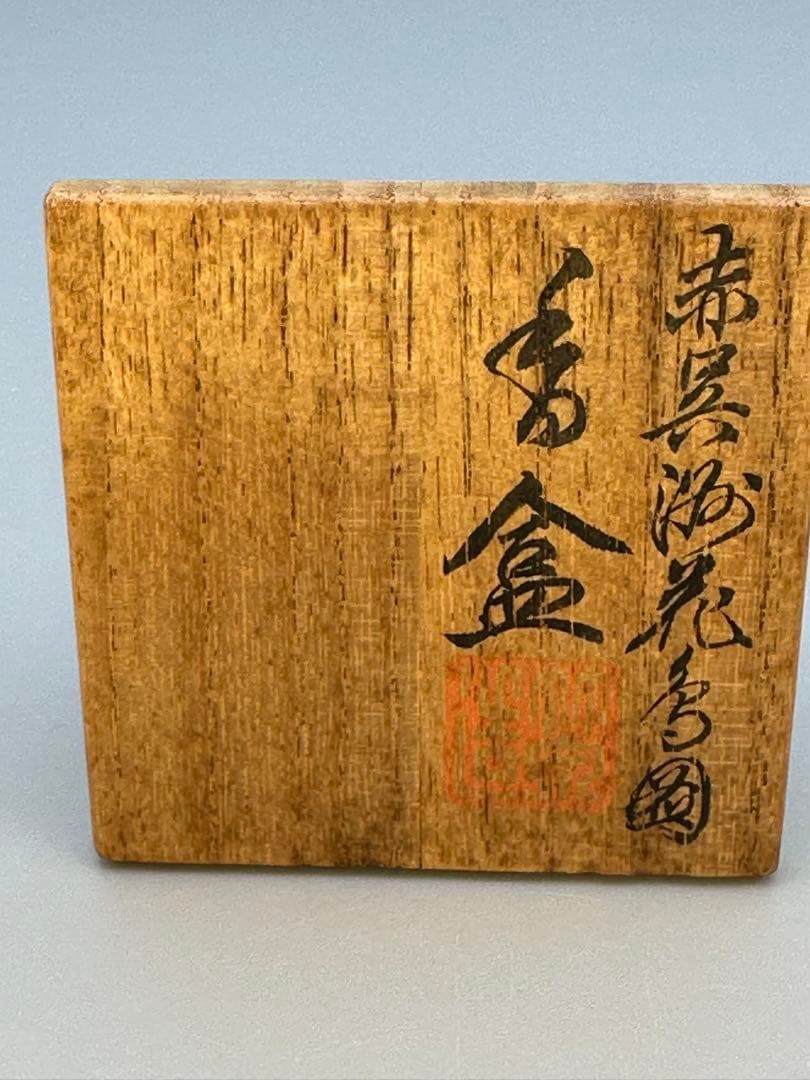 赤呉洲花鳥図
香盒